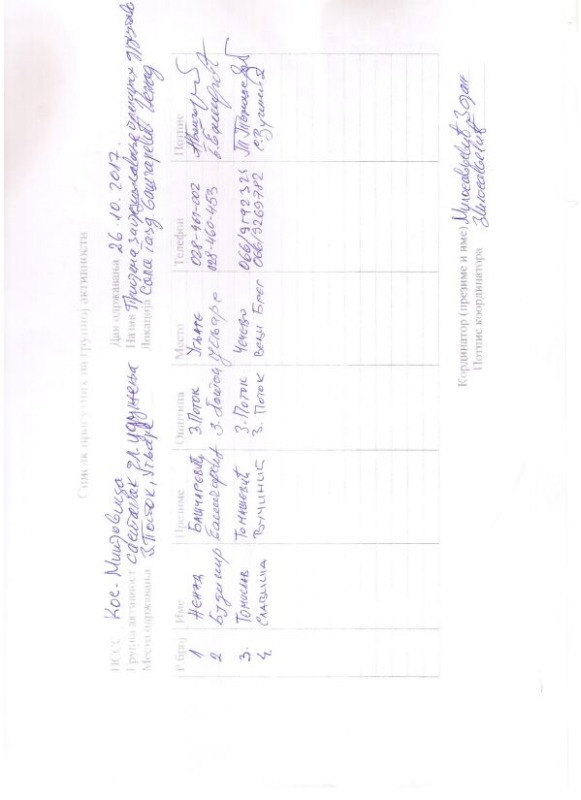 Списак присутних на групној активности
ПССС Кос. Митровица Дан одржавања 26.10.2017.
Група активност састанак чл. удружења Назив Примена задруга
Место одржавања З. Поток, Угљаре Локација Сала газд. Башчаревић Ненад
Р.број Име Презиме Општина Место Телефон Потпис
1 Ненад Башчаревић З. Поток Угљаре 028-461-002
2 Будимир Башчаревић З. Поток Угљаре 028-460-453 Б. Башчаревић
3. Томислав Томашевић З. Поток Чечево 066/9192321 Т. Томашевић
4. Славиша Вучинић З. Поток Вељи Брег 066/5269782 С. Вучинић
Кординатор (презиме и име) Милосављевић Зоран
Потпис координатора